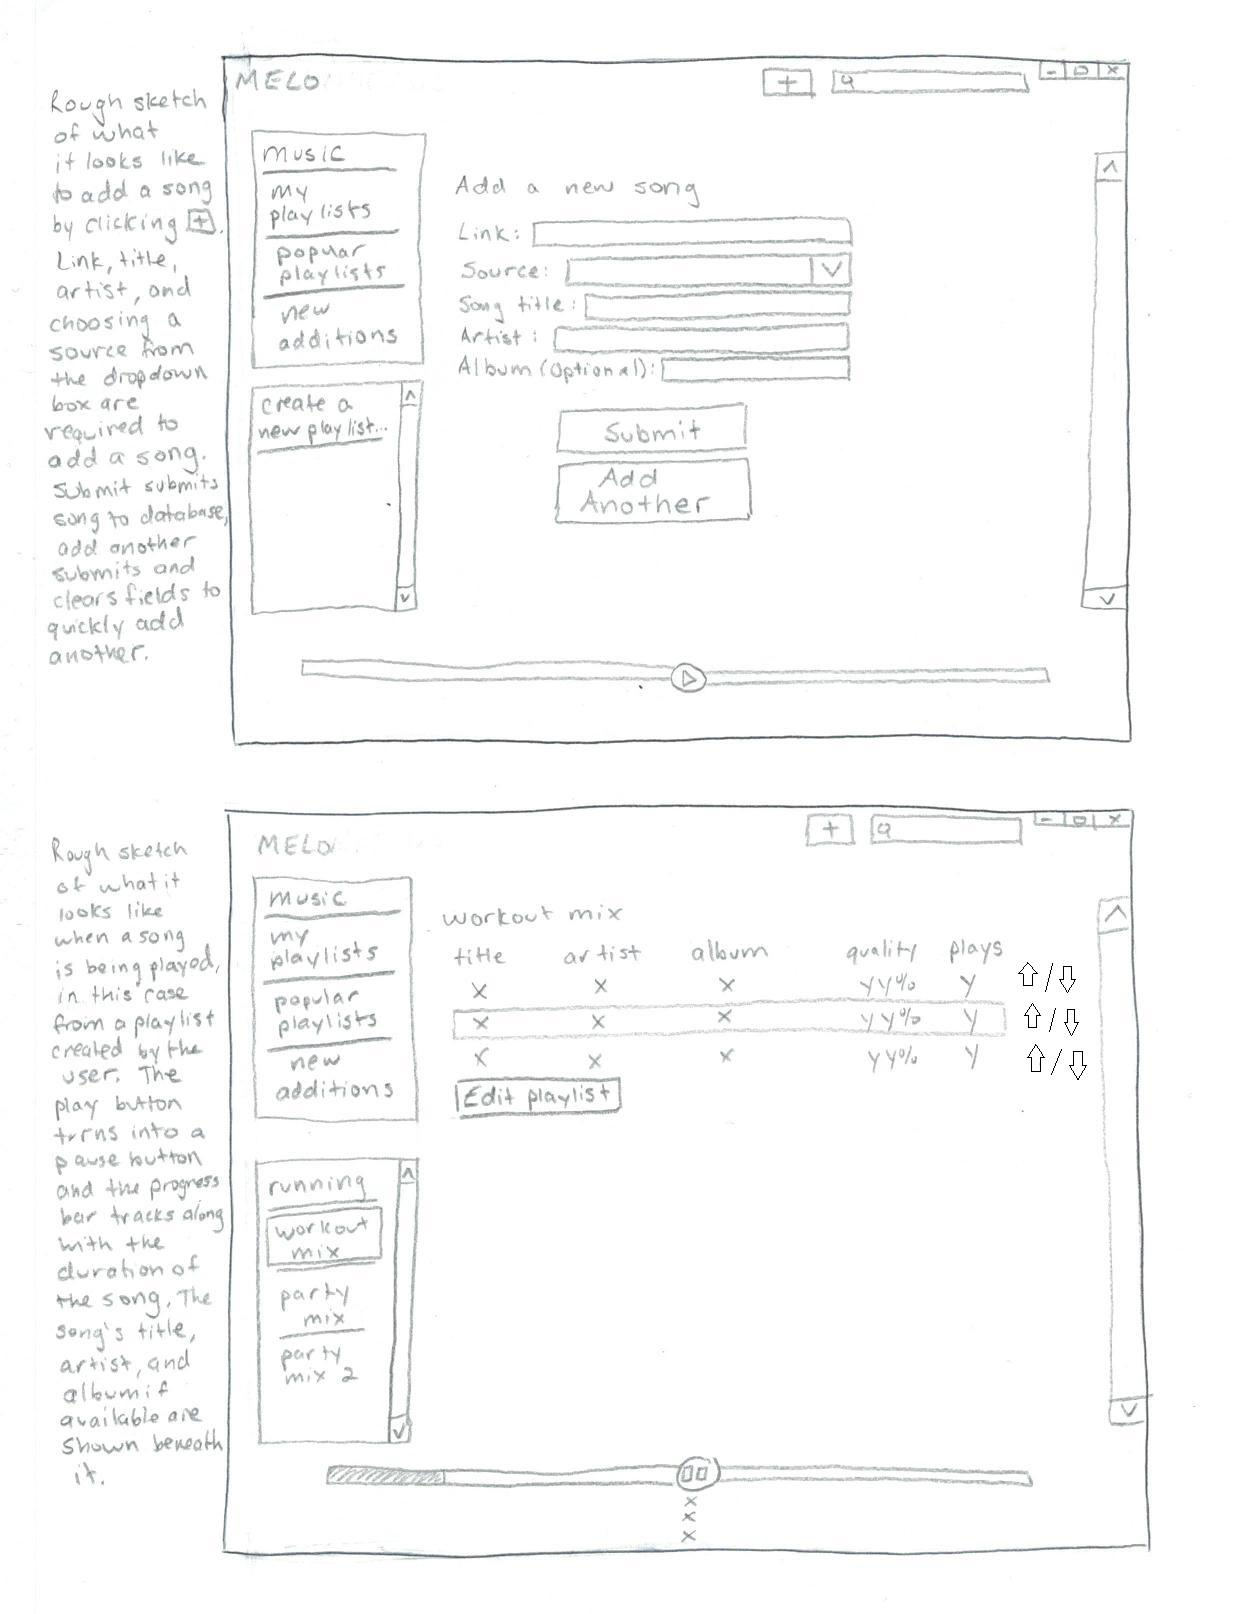 MELO
+
Rough sketch
of what
it looks like
to add a song
by clicking +.
Link, title,
artist, and
choosing a
source from
the dropdown
box are
required to
add a song.
Submit submits
song to database,
add another
submits and
clears fields to
quickly add
another.
music
my
playlists
popular
playlists
new
additions
create a
new playlist...
Add a new song
Link:
Source:
Song title:
Artist:
Album (Optional):
Submit
Add
Another
MELO
+
Rough sketch
of what it
looks like
when a song
is being played,
in this case
from a playlist
created by the
user. The
play button
turns into a
pause button
and the progress
bar tracks along
with the
duration of
the song. The
song's title,
artist, and
album if
available are
shown beneath
it.
music
my
playlists
popular
playlists
new
additions
running
workout
mix
party
mix
party
mix 2
workout mix
title artist album quality plays
x x x yy% y ⇧/⇩
x x x yy% y ⇧/⇩
x x x yy% y ⇧/⇩
Edit playlist
x
x
x